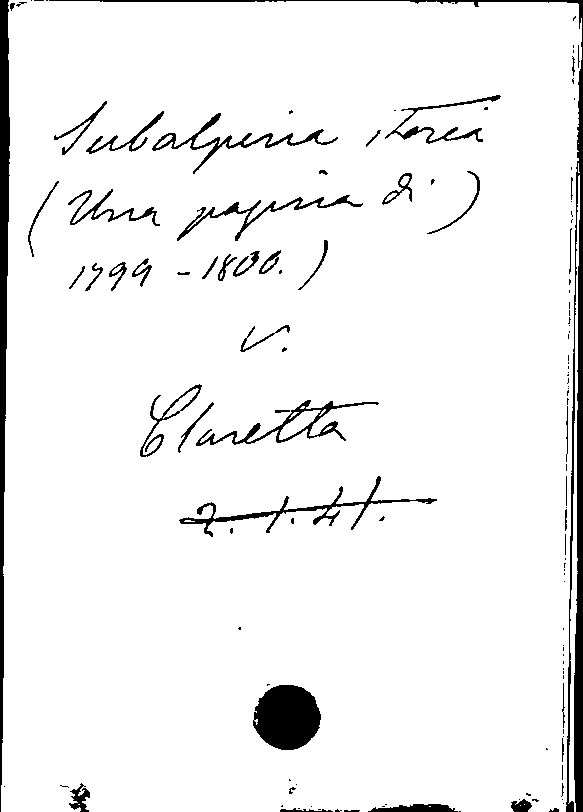 Subalpina storia
(Una pagina di)
1799-1800.)
V.
Claretta
2.1.41.